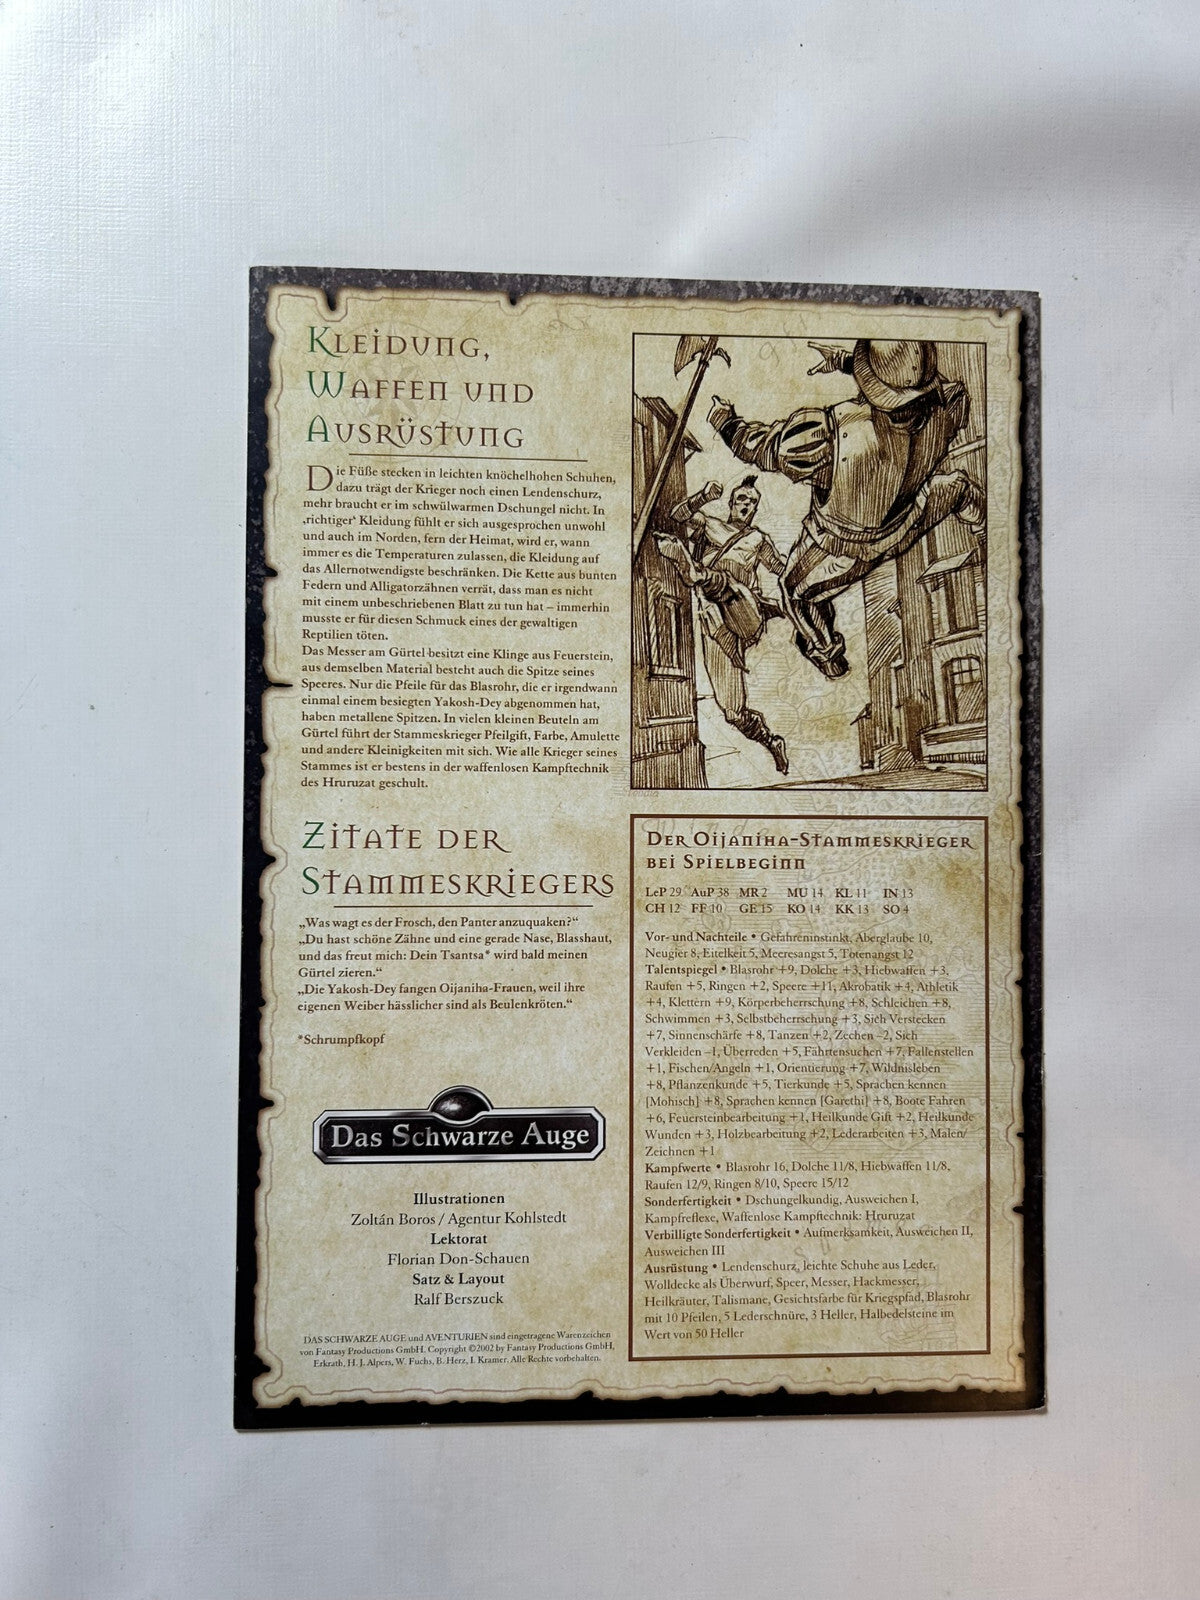 Kleidung,
Waffen und
Ausrüstung
Die Füße stecken in leichten knöchelhohen Schuhen,
dazu trägt der Krieger noch einen Lendenschurz,
mehr braucht er im schwülwarmen Dschungel nicht. In
‚richtiger‘ Kleidung fühlt er sich ausgesprochen unwohl
und auch im Norden, fern der Heimat, wird er, wann
immer es die Temperaturen zulassen, die Kleidung auf
das Allernotwendigste beschränken. Die Kette aus bunten
Federn und Alligatorzähnen verrät, dass man es nicht
mit einem unbeschriebenen Blatt zu tun hat – immerhin
musste er für diesen Schmuck eines der gewaltigen
Reptilien töten.
Das Messer am Gürtel besitzt eine Klinge aus Feuerstein,
aus demselben Material besteht auch die Spitze seines
Speeres. Nur die Pfeile für das Blasrohr, die er irgendwann
einmal einem besiegten Yakosh-Dey abgenommen hat,
haben metallene Spitzen. In vielen kleinen Beuteln am
Gürtel führt der Stammeskrieger Pfeilgift, Farbe, Amulette
und andere Kleinigkeiten mit sich. Wie alle Krieger seines
Stammes ist er bestens in der waffenlosen Kampftechnik
des Hruruzat geschult.
Zitate der
Stammeskriegers
„Was wagt es der Frosch, den Panter anzuquaken?“
„Du hast schöne Zähne und eine gerade Nase, Blasshaut,
und das freut mich: Dein Tsantsa* wird bald meinen
Gürtel zieren.“
„Die Yakosh-Dey fangen Oijaniha-Frauen, weil ihre
eigenen Weiber hässlicher sind als Beulenkröten.“
*Schrumpfkopf
Das Schwarze Auge
Illustrationen
Zoltán Boros / Agentur Kohlstedt
Lektorat
Florian Don-Schauen
Satz & Layout
Ralf Berszuck
DAS SCHWARZE AUGE und AVENTURIEN sind eingetragene Warenzeichen
von Fantasy Productions GmbH. Copyright ©2002 by Fantasy Productions GmbH,
Erkrath, H. J. Alpers, W. Fuchs, B. Herz, I. Kramer. Alle Rechte vorbehalten.
Der Oijaniha-Stammeskrieger
bei Spielbeginn
LeP 29 AuP 38 MR 2 MU 14 KL 11 IN 13
CH 12 FF 10 GE 15 KO 14 KK 13 SO 4
Vor- und Nachteile • Gefahreninstinkt, Aberglaube 10,
Neugier 8, Eitelkeit 5, Meeresangst 5, Totenangst 12
Talentspiegel • Blasrohr +9, Dolche +3, Hiebwaffen +3,
Raufen +5, Ringen +2, Speere +11, Akrobatik +4, Athletik
+4, Klettern +9, Körperbeherrschung +8, Schleichen +8,
Schwimmen +3, Selbstbeherrschung +3, Sich Verstecken
+7, Sinnenschärfe +8, Tanzen +2, Zechen –2, Sich
Verkleiden –1, Überreden +5, Fährtensuchen +7, Fallenstellen
+1, Fischen/Angeln +1, Orientierung +7, Wildnisleben
+8, Pflanzenkunde +5, Tierkunde +5, Sprachen kennen
[Mohisch] +8, Sprachen kennen [Garethi] +8, Boote Fahren
+6, Feuersteinbearbeitung +1, Heilkunde Gift +2, Heilkunde
Wunden +3, Holzbearbeitung +2, Lederarbeiten +3, Malen/
Zeichnen +1
Kampfwerte • Blasrohr 16, Dolche 11/8, Hiebwaffen 11/8,
Raufen 12/9, Ringen 8/10, Speere 15/12
Sonderfertigkeit • Dschungelkundig, Ausweichen I,
Kampfreflexe, Waffenlose Kampftechnik: Hruruzat
Verbilligte Sonderfertigkeit • Aufmerksamkeit, Ausweichen II,
Ausweichen III
Ausrüstung • Lendenschurz, leichte Schuhe aus Leder,
Wolldecke als Überwurf, Speer, Messer, Hackmesser,
Heilkräuter, Talismane, Gesichtsfarbe für Kriegspfad, Blasrohr
mit 10 Pfeilen, 5 Lederschnüre, 3 Heller, Halbedelsteine im
Wert von 50 Heller